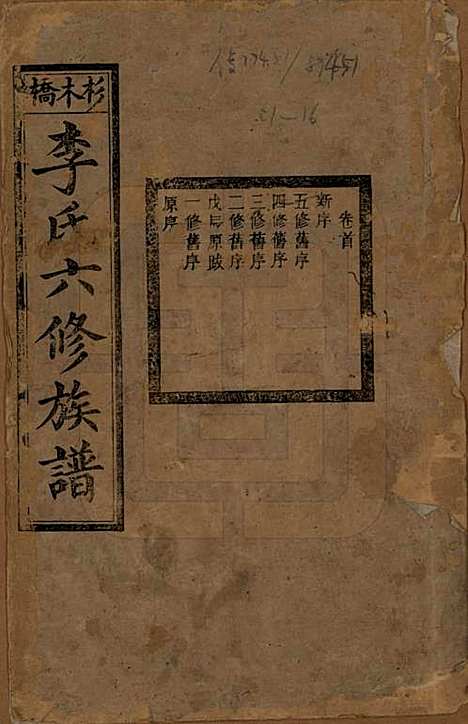 杉木橋
李氏六修族譜
卷首
新序
五修舊序
四修舊序
三修舊序
二修舊序
戊申原跋
一修舊序
原序
51—16